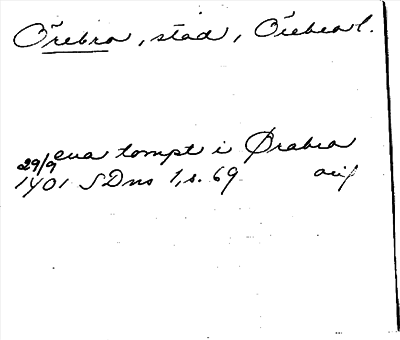 Örebro, stad, Örebro l.
ena tompt i Ørabro
29/9
1401 SDns 1, s. 69 orig